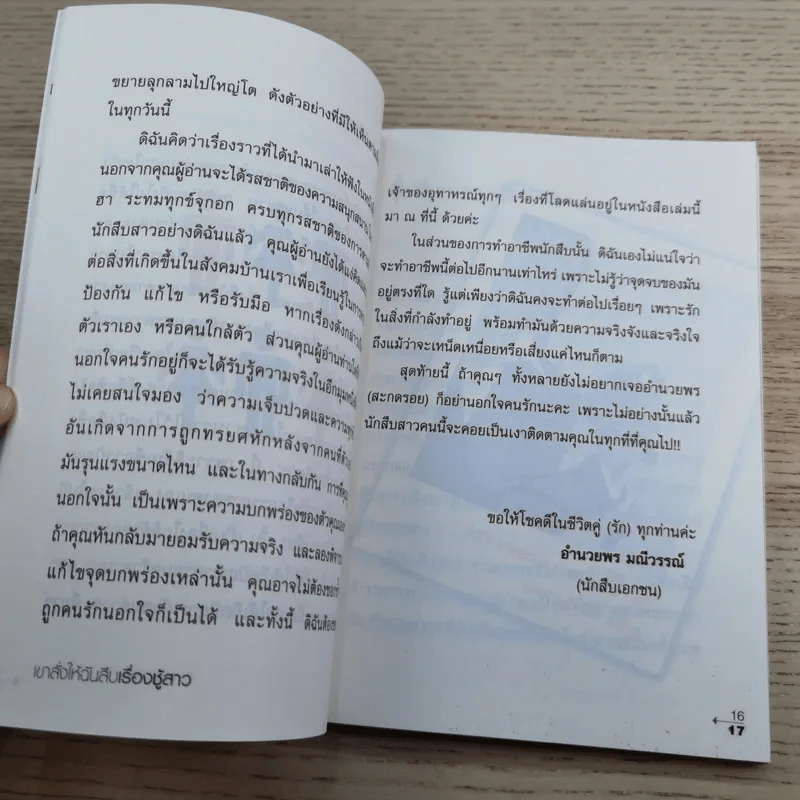 ขยายลุกลามไปใหญ่โต ดังตัวอย่างที่มีให้เห็น
ในทุกวันนี้
ดิฉันคิดว่าเรื่องราวที่ได้นำมาเล่าให้ฟังใน
นอกจากคุณผู้อ่านจะได้รสชาติของความสนุกสนาน
ฮา ระทมทุกข์จุกอก ครบทุกรสชาติของการ
นักสืบสาวอย่างดิฉันแล้ว คุณผู้อ่านยังได้แง่คิด
ต่อสิ่งที่เกิดขึ้นในสังคมบ้านเราเพื่อเรียนรู้ในการ
ป้องกัน แก้ไข หรือรับมือ หากเรื่องดังกล่าว
ตัวเราเอง หรือคนใกล้ตัว ส่วนคุณผู้อ่านท่านใด
นอกใจคนรักอยู่ก็จะได้รับรู้ความจริงในอีกมุม
ไม่เคยสนใจมอง ว่าความเจ็บปวดและความ
อันเกิดจากการถูกทรยศหักหลังจากคนที่ตัว
มันรุนแรงขนาดไหน และในทางกลับกัน การที่
นอกใจนั้น เป็นเพราะความบกพร่องของตัวคุณเอง
ถ้าคุณหันกลับมายอมรับความจริง และลอง
แก้ไขจุดบกพร่องเหล่านั้น คุณอาจไม่ต้อง
ถูกคนรักนอกใจก็เป็นได้ และทั้งนี้ ดิฉันต้อง
เขาสั่งให้ฉันสืบเรื่องชู้สาว
เจ้าของอุทาหรณ์ทุกๆ เรื่องที่โลดแล่นอยู่ในหนังสือเล่มนี้
มา ณ ที่นี้ ด้วยค่ะ
ในส่วนของการทำอาชีพนักสืบนั้น ดิฉันเองไม่แน่ใจว่า
จะทำอาชีพนี้ต่อไปอีกนานเท่าไหร่ เพราะไม่รู้ว่าจุดจบของมัน
อยู่ตรงที่ใด รู้แต่เพียงว่าดิฉันคงจะทำต่อไปเรื่อยๆ เพราะรัก
ในสิ่งที่กำลังทำอยู่ พร้อมทำมันด้วยความจริงจังและจริงใจ
ถึงแม้ว่าจะเหน็ดเหนื่อยหรือเสี่ยงแค่ไหนก็ตาม
สุดท้ายนี้ ถ้าคุณๆ ทั้งหลายยังไม่อยากเจออำนวยพร
(สะกดรอย) ก็อย่านอกใจคนรักนะคะ เพราะไม่อย่างนั้นแล้ว
นักสืบสาวคนนี้จะคอยเป็นเงาติดตามคุณในทุกที่ที่คุณไป!!
ขอให้โชคดีในชีวิตคู่ (รัก) ทุกท่านค่ะ
อำนวยพร มณีวรรณ์
(นักสืบเอกชน)
16
17